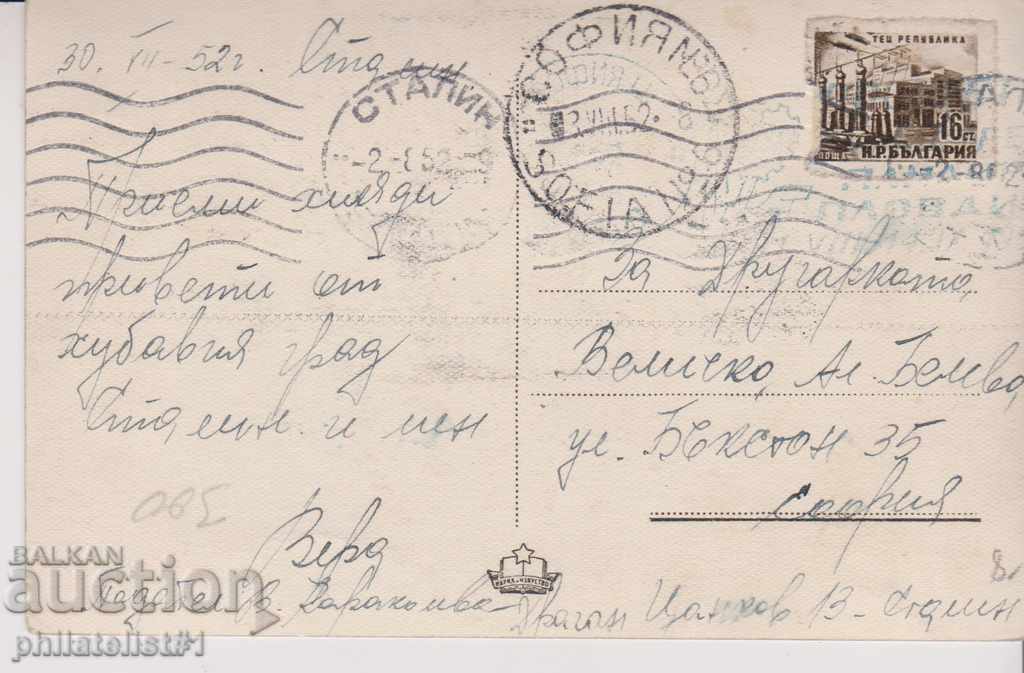 30. VII - 52г. Сталин
СТАЛИН
-2.-8 52.-9
"СОФИЯ №6
SOFIA №
ТЕЦ РЕПУБЛИКА
16 ЛВ.
ПОЩА
Н.Р.БЪЛГАРИЯ
Приеми хиляди
привети от
хубавия град
Сталин. и мен
Вера
За Другарката
Величка Ал.
ул. Бъкстон 35
София
НАУКА И ИЗКУСТВО
Подател В.
Драган Цанков 13 - Сталин
BALKAN
auction
philatelist#1